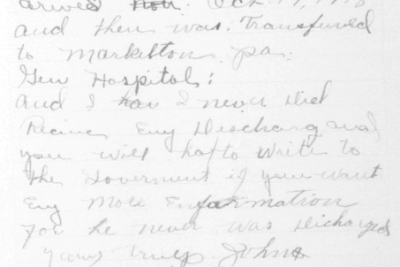 arived Oct 19, 1918
and then was. Transfured
to Markelton pa.
Gen Hospital:
And I hav I never Did
Recive Eny Discharg and
you will hafto write to
the Goverment if you want
Eny More Enfarmation
for he never was Discharged
yours truly John